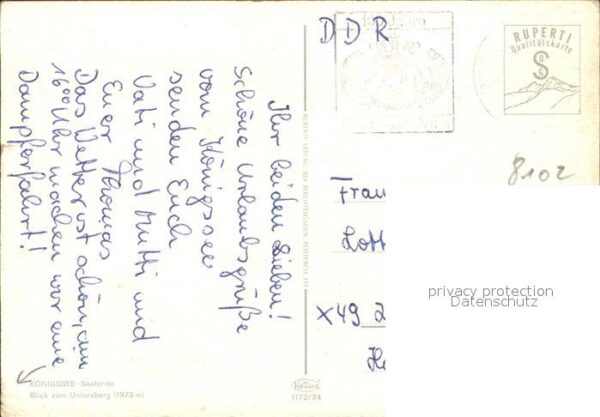 Ihr beiden Lieben!
Schöne Urlaubsgrüße
vom Königssee
senden Euch
Vati und Mutti und
Euer Thomas
Das Wetter ist schön, um
16⁰⁰ Uhr machen wir eine
Dampferfahrt!
KÖNIGSSEE - Seelände
Blick zum Untersberg (1973 m)
1172/34
DDR
RUPERTI
Qualitätskarte
8102
Frau
Lott
X49
privacy protection
Datenschutz